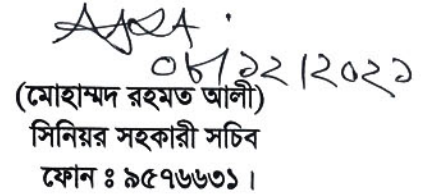 ০৮/১২/২০২১
(মোহাম্মদ রহমত আলী)
সিনিয়র সহকারী সচিব
ফোন ঃ ৯৫৭৬৬৩১।